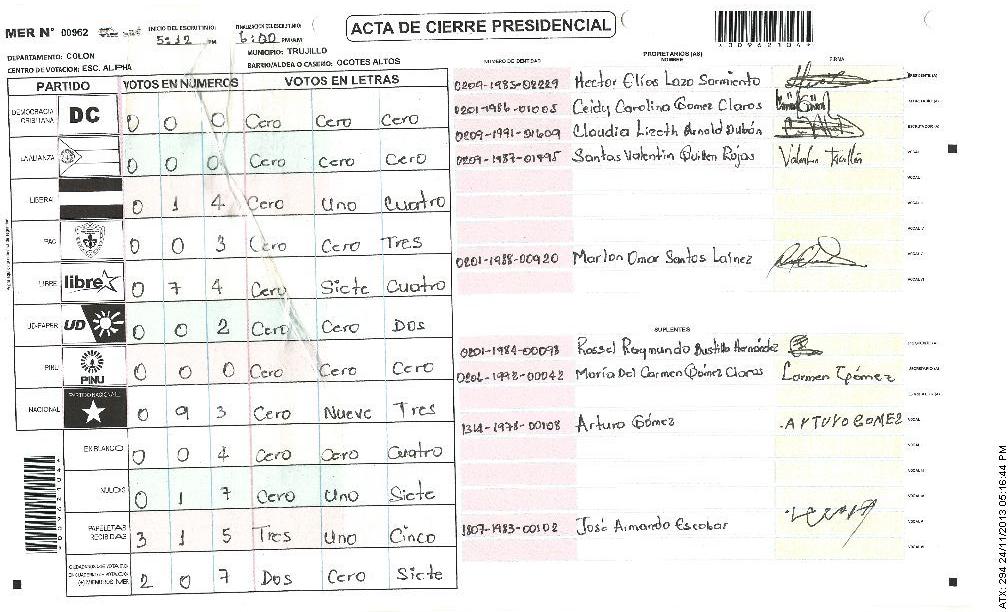 MER N° 00962
INICIO DEL ESCRUTINIO: 5:12 PM
FINALIZACION DEL ESCRUTINIO: 6:00 PM/AM
ACTA DE CIERRE PRESIDENCIAL
DEPARTAMENTO: COLON
MUNICIPIO: TRUJILLO
CENTRO DE VOTACION: ESC. ALIPHA
BARRIO/ALDEA O CASERIO: OCOTES ALTOS
PARTIDO VOTOS EN NÚMEROS VOTOS EN LETRAS
DEMOCRACIA CRISTIANA DC 0 0 0 Cero Cero Cero
LA ALIANZA 0 0 0 Cero Cero Cero
LIBERAL 0 1 4 Cero Uno Cuatro
PAC 0 0 3 Cero Cero Tres
LIBRE libre 0 7 4 Cero Siete Cuatro
UD-FAPER UD 0 0 2 Cero Cero Dos
PINU PINU 0 0 0 Cero Cero Cero
NACIONAL PARTIDO NACIONAL 0 9 3 Cero Nueve Tres
EN BLANCO 0 0 4 Cero Cero Cuatro
NULOS 0 1 7 Cero Uno Siete
PAPELETAS RECIBIDAS 3 1 5 Tres Uno Cinco
2 0 7 Dos Cero Siete
PROPIETARIOS (AS)
NÚMERO DE IDENTIDAD NOMBRE FIRMA
0209-1983-02229 Hector Elías Lazo Sarmiento
0201-1986-01005 Ceidy Carolina Gómez Claros
0209-1991-01609 Claudia Lizeth Arnold Dubón
0209-1987-01495 Santos Valentin Guillen Rojas
0201-1988-00920 Marlon Omar Santos Lainez
SUPLENTES
0201-1984-00093 Rossel Raymundo Bustillo Hernández
0202-1992-00042 María Del Carmen Gómez Claros Carmen Gómez
1314-1978-00108 Arturo Gómez ARTURO GOMEZ
1807-1983-00102 José Armando Escobar
ATX: 294 24/11/2013 05:16:44 PM